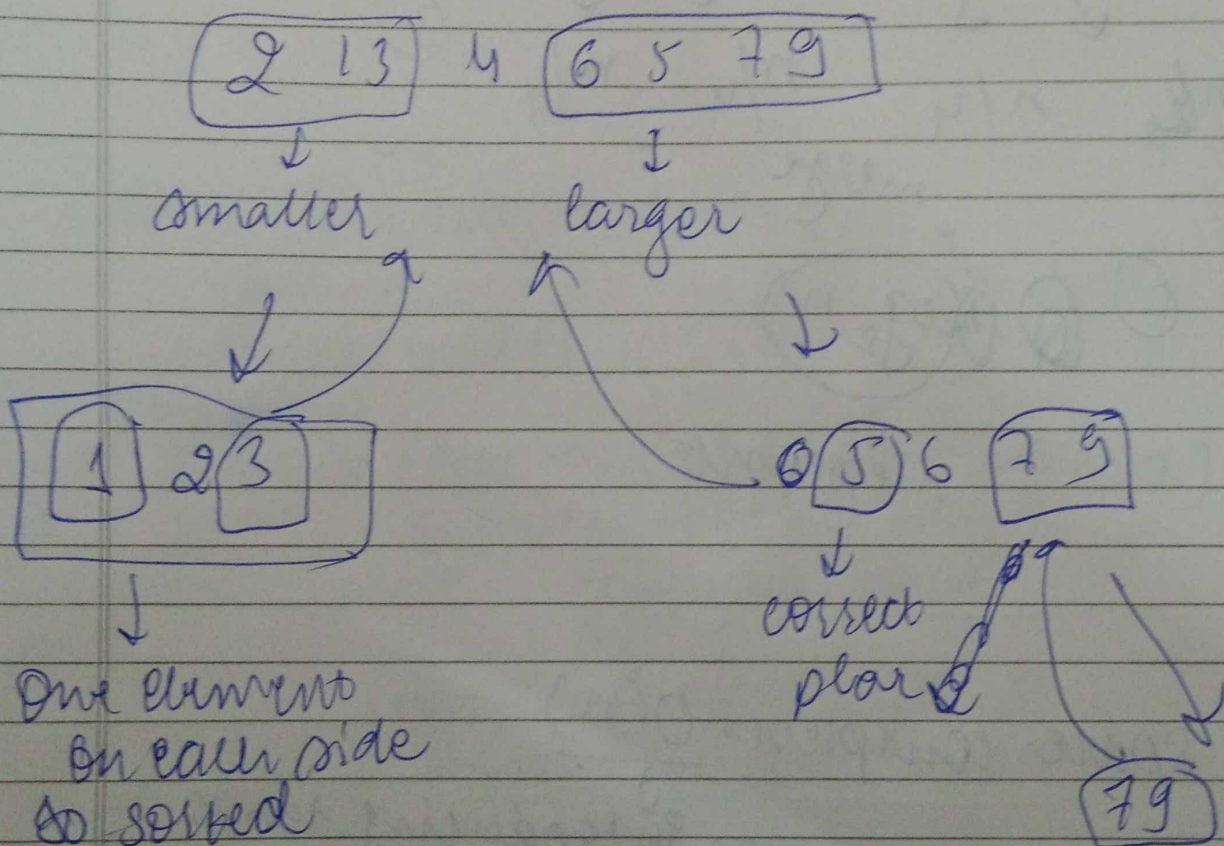 2 1 3 4 6 5 7 9
smaller larger
1 2 3 5 6 7 9
correct
place
One element
on each side
so sorted
7 9